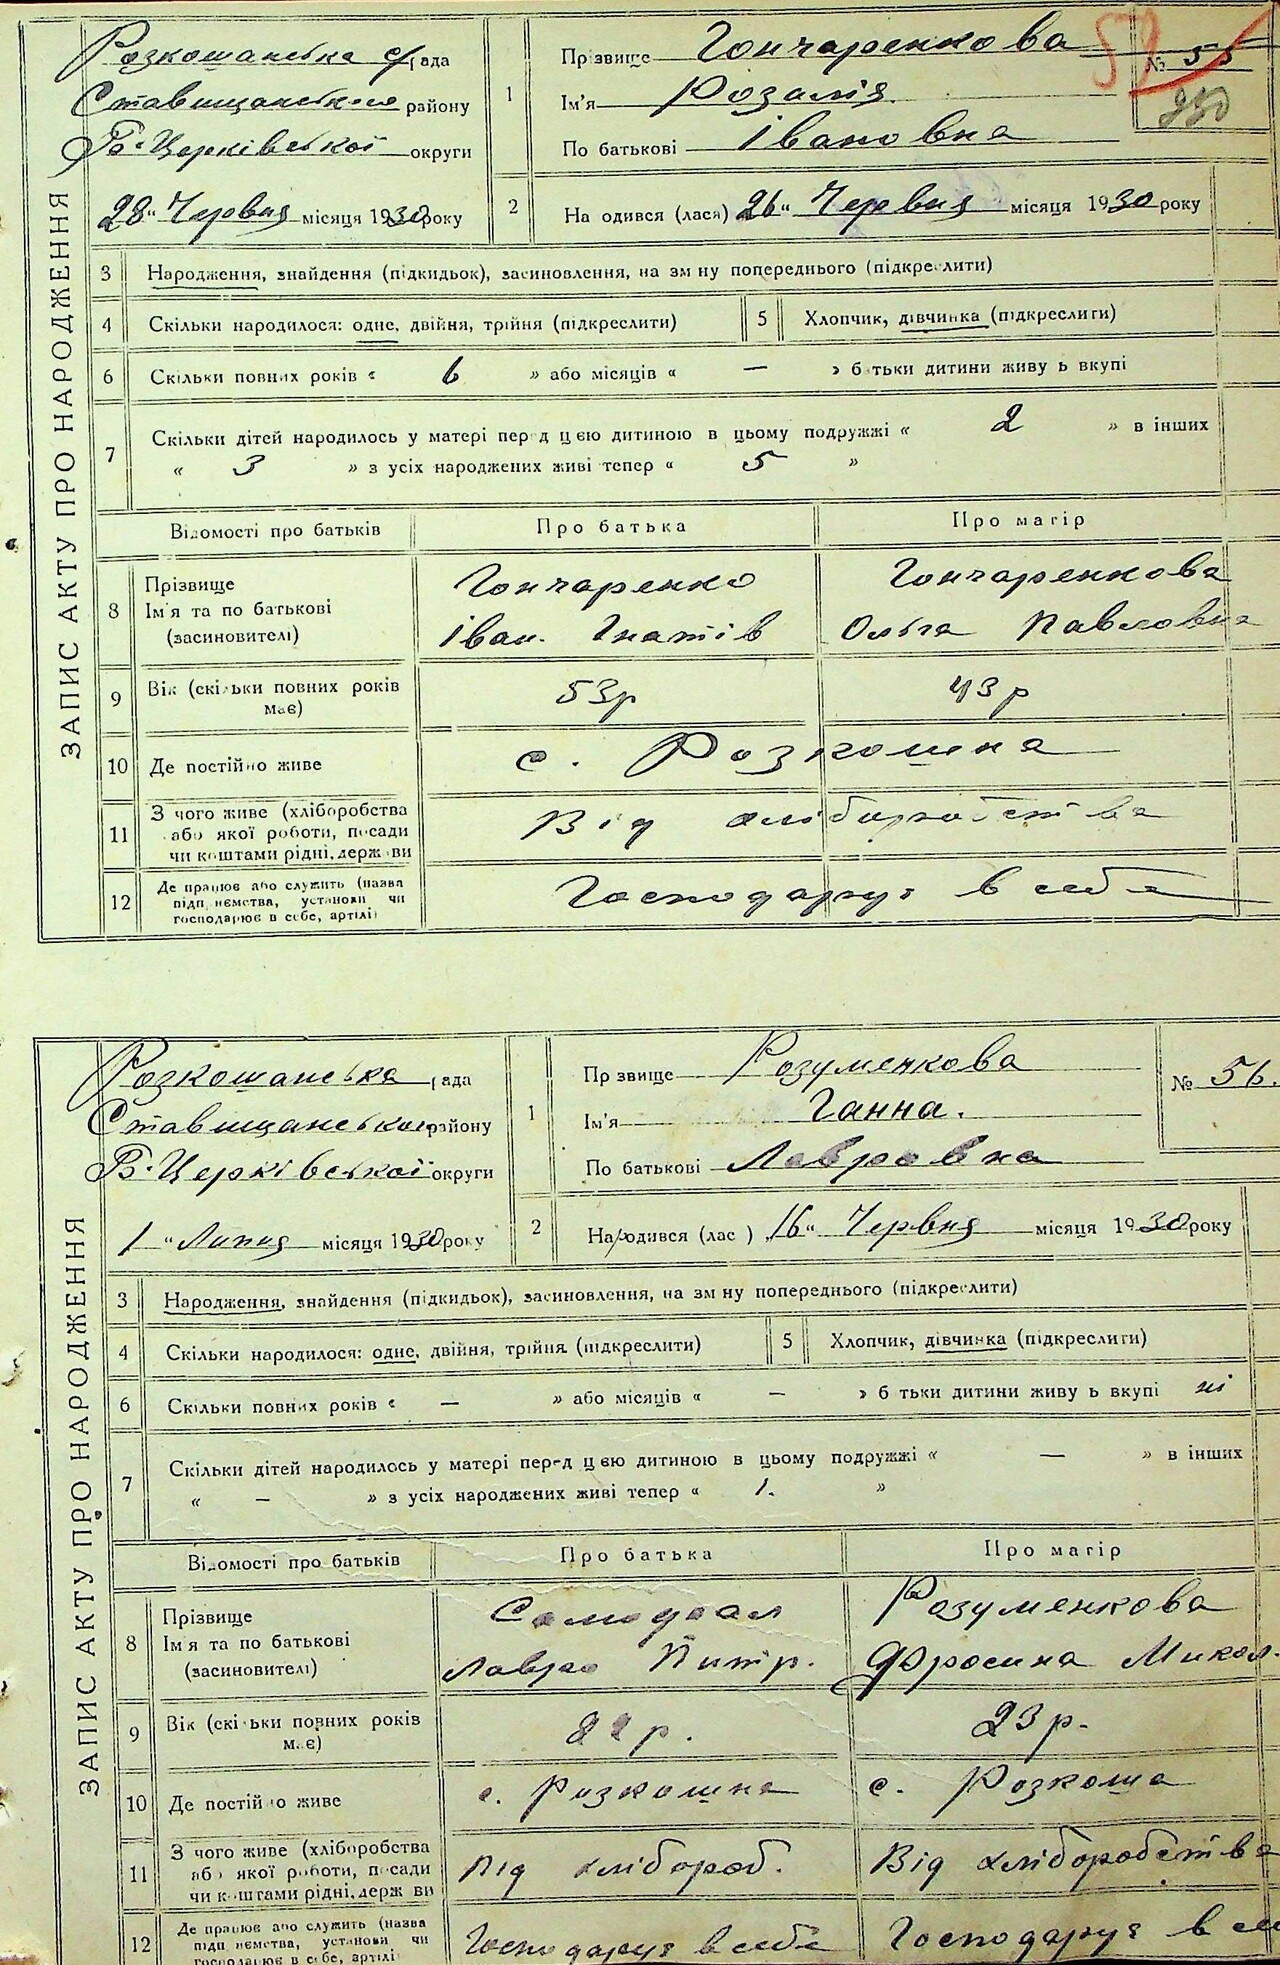 ЗАПИС АКТУ ПРО НАРОДЖЕННЯ
Розкошанська с/рада
Ставищанського району
Б-Церківської округи
28 " Червня місяця 1930 року
1 Прізвище Гончаренкова
Ім'я Розалія.
По батькові Івановна
59
№ 55
2 На одився (лася) 26 " Червня місяця 1930 року
3 Народження, знайдення (підкидьок), засиновлення, на зм ну попереднього (підкреслити)
4 Скільки народилося: одне, двійня, трійня (підкреслити) 5 Хлопчик, дівчинка (підкреслити)
6 Скільки повних років « 6 » або місяців « — » б тьки дитини живу ь вкупі
7 Скільки дітей народилось у матері перед цією дитиною в цьому подружжі « 2 » в інших
« 3 » з усіх народжених живі тепер « 5 »
Відомості про батьків Про батька Про матір
8 Прізвище Ім'я та по батькові (засиновителі)
Гончаренко Гончаренкова
Іван. Гнатів Ольга Павловна
9 Вік (скільки повних років має) 53р 43р
10 Де постійно живе с. Розкошна
11 З чого живе (хліборобства або якої роботи, посади чи коштами рідні, держ ви Від хліборобства
12 Де працює або служить (назва підп иємства, установи чи господарює в себе, артілі) Господарує в себе
ЗАПИС АКТУ ПРО НАРОДЖЕННЯ
Розкошанська рада
Ставищанського району
Б-Церківської округи
1 " Липня місяця 1930 року
1 Пр звище Розуменкова
Ім'я Ганна.
По батькові Лавровна
№ 56.
2 Народився (лас ) 16 " Червня місяця 1930 року
3 Народження, знайдення (підкидьок), засиновлення, на зм ну попереднього (підкреслити)
4 Скільки народилося: одне, двійня, трійня (підкреслити) 5 Хлопчик, дівчинка (підкреслити)
6 Скільки повних років « — » або місяців « — » б тьки дитини живу ь вкупі ні
7 Скільки дітей народилось у матері перед цією дитиною в цьому подружжі « — » в інших
« — » з усіх народжених живі тепер « 1. »
Відомості про батьків Про батька Про матір
8 Прізвище Ім'я та по батькові (засиновителі)
Розуменкова
Лавро Питр. Фросина Микол.
9 Вік (скільки повних років має) р. 23р.
10 Де постійно живе с. Розкошна с. Розкоша
11 З чого живе (хліборобства або якої роботи, посади чи коштами рідні, держ ви Від хлібороб. Від хліборобства
12 Де працює або служить (назва підп иємства, установи чи господарює в себе, артілі Господарує в себе Господарує в